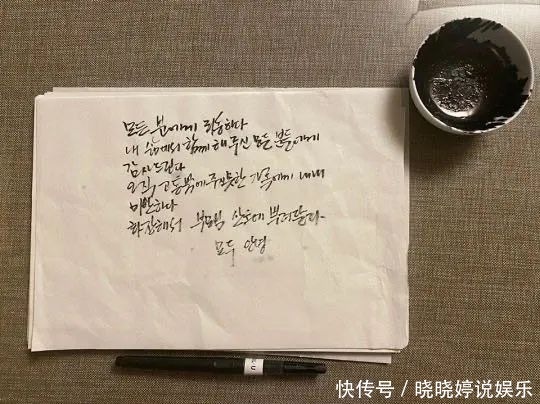 모든 분에게 죄송하다
내 삶에서 함께 해주신 모든 분들에게
감사드린다
오직 고통밖에 주지 못한 가족에게 내내
미안하다
화장해서 부모님 산소에 뿌려달라.
모두 안녕
快传号 / 晓晓婷说娱乐